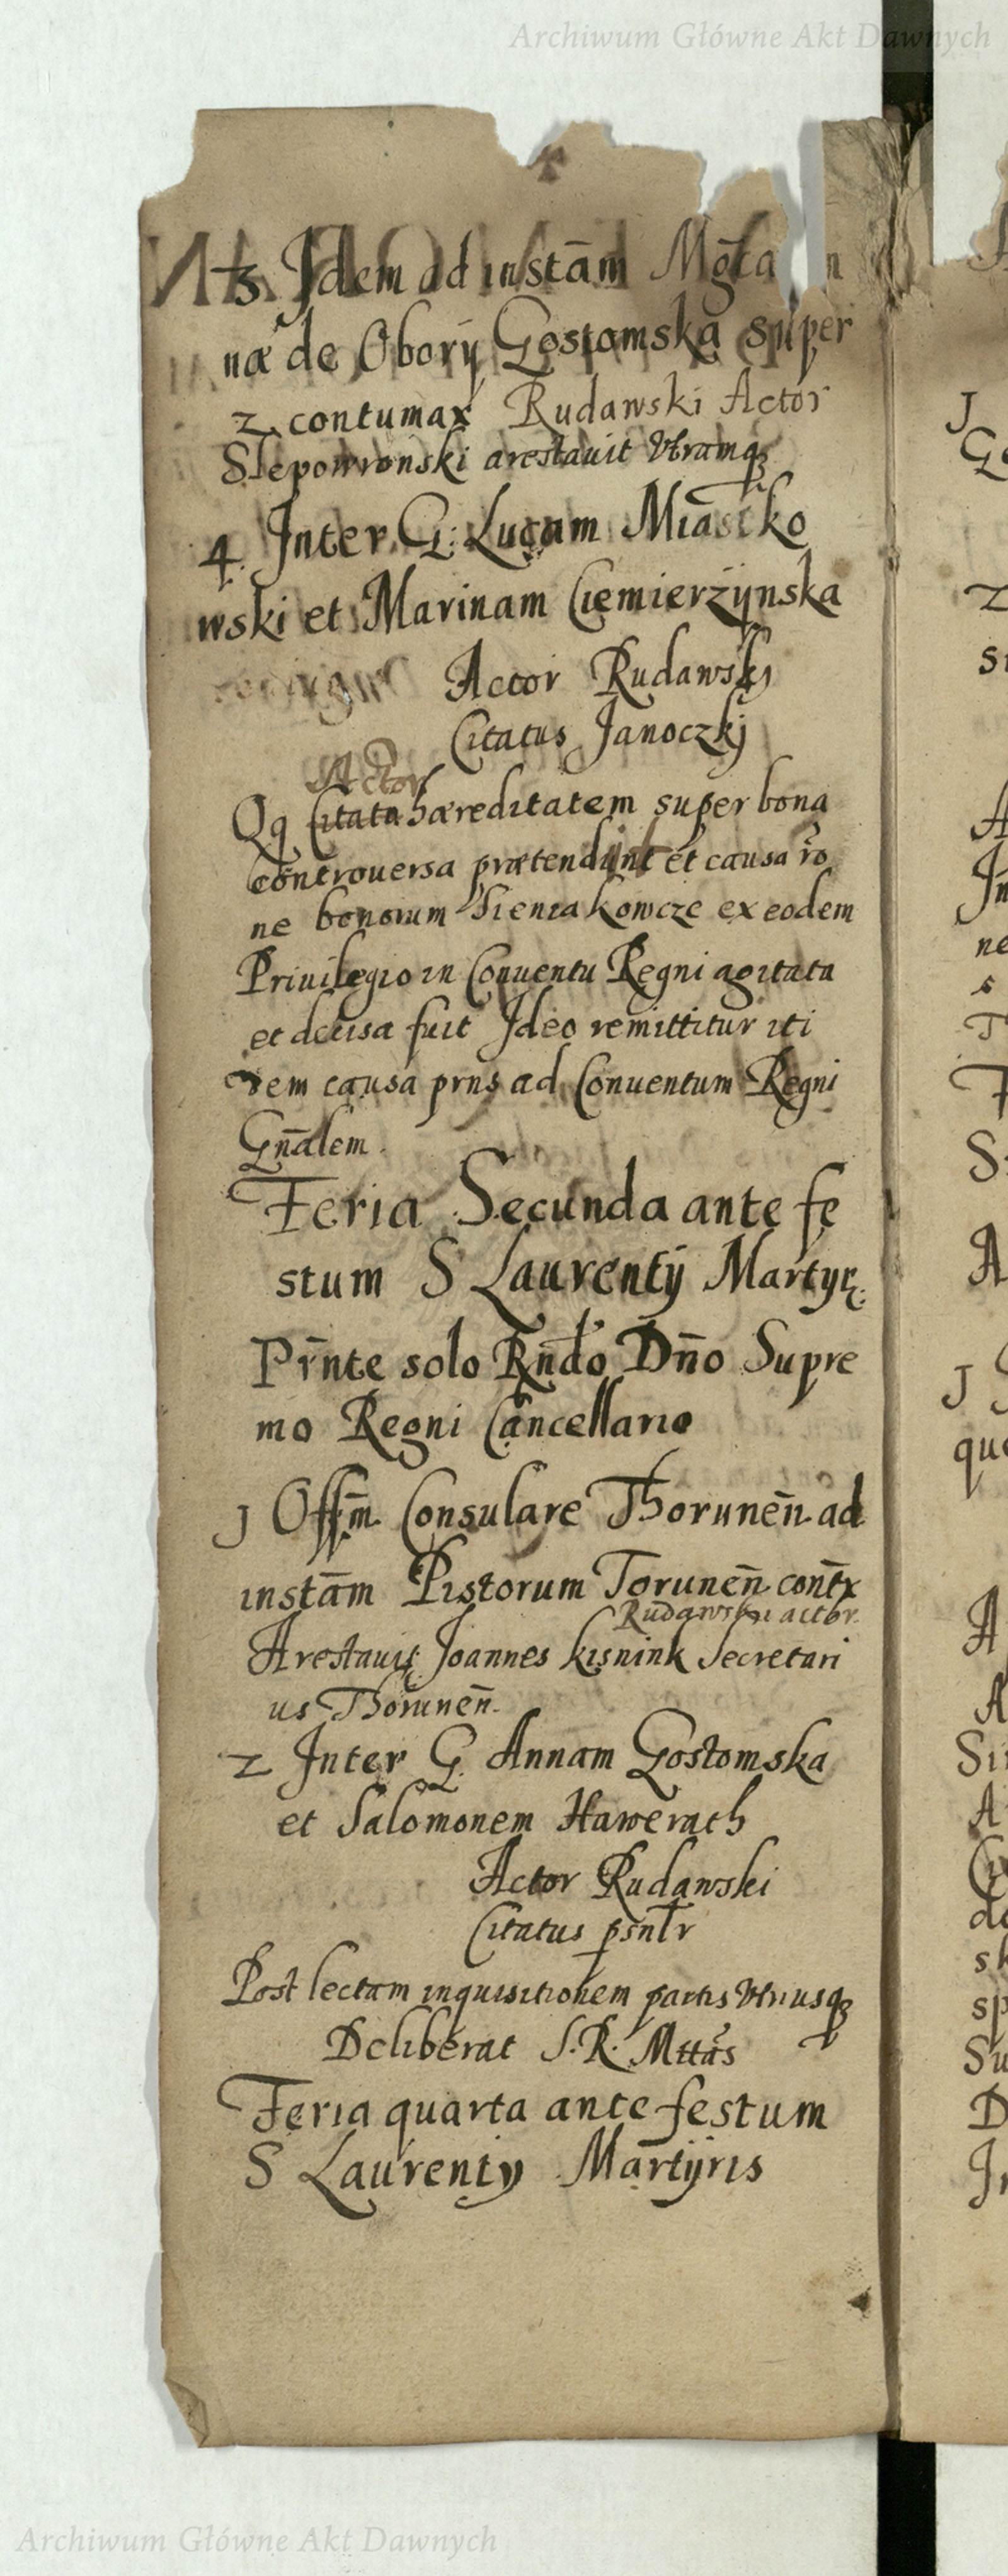 Archiwum Główne Akt Dawnych
3 Idem ad instām Mgca n
næ de Obory Gostomska super
2 contumax Rudawski Actor
Slepowronski arestauit Vtramq;
4. Inter G: Lucam Miastko
wski et Marinam Ciemierzÿnska
Actor Rudawskj
Citatus Janoczkj
Actor
Qq Citata hæreditatem super bona
controuersa prætendunt et causa rō
ne bonorum Sieniakowcze ex eodem
Priuilegio in Conuentu Regni agitata
et decisa fuit Ideo remittitur iti
dem causa prns ad Conuentum Regni
Gnālem.
Feria Secunda ante fe
stum S Laurentÿ Martyr.
Prn̄te solo Rndo Dn̄o Supre
mo Regni Cancellario
J Offm̄ Consulare Thorunen̄ ad
instām Pistorum Torunen̄ contx
Rudawski actor
Arestauit Joannes kisnink Secretari
us Thorunen̄.
2 Inter G. Annam Gostomska
et Salomonem Hawerath
Actor Rudawski
Citatus psntr
Post lectam inquisitionem partis Vtriusq;
Deliberat S. R. Mttas
Feria quarta ante festum
S Laurentÿ Martÿris
Archiwum Główne Akt Dawnych